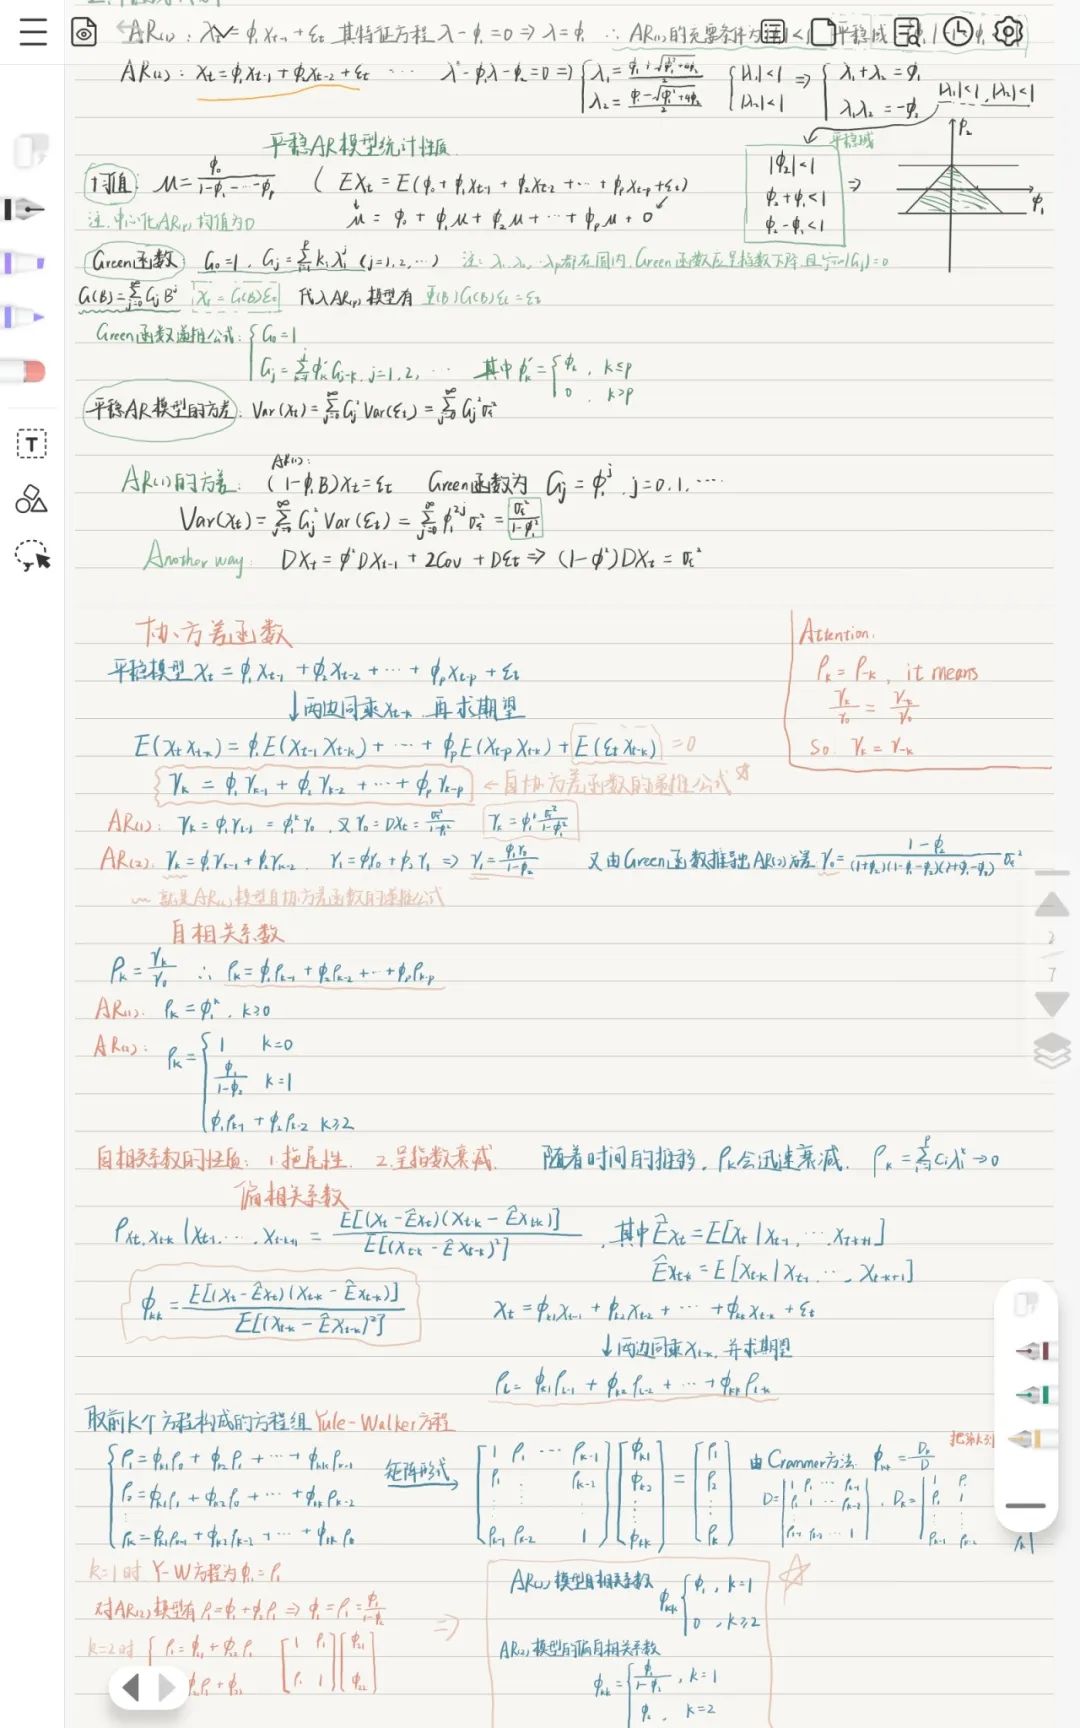 AR(1): Xt = φ1Xt-1 + εt 其特征方程 λ-φ1=0 ⇒ λ=φ1 ∴ AR(1)的充要条件为 <1 平稳域
AR(2): Xt = φ1Xt-1 + φ2Xt-2 + εt ⋯ λ²-φ1λ-φ2=0 ⇒ { λ1 = (φ1+√(φ1²+4φ2))/2 , λ2 = (φ1-√(φ1²+4φ2))/2 { |λ1|<1 , |λ2|<1 ⇒ { λ1+λ2=φ1 , λ1λ2=-φ2
|λ1|<1, |λ2|<1
平稳AR模型统计性质
平稳域
|φ2|<1
φ2+φ1<1
φ2-φ1<1
⇒
φ2
φ1
均值 μ = φ0/(1-φ1-⋯-φp) ( EXt = E(φ0+φ1Xt-1+φ2Xt-2+⋯+φpXt-p+εt)
注: 中心化AR(p)均值为0
μ = φ0+φ1μ+φ2μ+⋯+φpμ+0
Green函数 G0=1, Gj=Σki λi^j (j=1,2,⋯) 注: λ1,λ2,⋯λp都在圆内, Green函数应呈指数下降 且
G(B)=ΣGjB^j Xt=G(B)εt 代入AR(p)模型有 Φ(B)G(B)εt=εt
Green函数递推公式: { G0=1
Gj=Σφk'Gj-k, j=1,2,⋯ 其中φk'={ φk, k≤p
0, k>p
平稳AR模型的方差: Var(Xt)=ΣGj²Var(εt)=ΣGj²σε²
AR(1):
AR(1)的方差: (1-φ1B)Xt=εt Green函数为 Gj=φ1^j, j=0,1,⋯
Var(Xt)=ΣGj²Var(εt)=Σφ1^2j σε²=σε²/(1-φ1²)
Another way: DXt=φ²DXt-1+2Cov+Dεt ⇒ (1-φ²)DXt=σε²
协方差函数
平稳模型 Xt=φ1Xt-1+φ2Xt-2+⋯+φpXt-p+εt
↓两边同乘Xt-k, 再求期望
E(XtXt-k)=φ1E(Xt-1Xt-k)+⋯+φpE(Xt-pXt-k)+E(εtXt-k)=0
γk=φ1γk-1+φ2γk-2+⋯+φpγk-p ←自协方差函数的递推公式☆
Attention.
ρk=ρ-k, it means
γk/γ0 = γ-k/γ0
So. γk=γ-k
AR(1): γk=φ1γk-1=φ1^kγ0, 又γ0=DXt=σε²/(1-φ1²) γk=φ1^k σε²/(1-φ1²)
AR(2): γk=φ1γk-1+φ2γk-2 γ1=φ1γ0+φ2γ1 ⇒ γ1=φ1γ0/(1-φ2) 又由Green函数推导出AR(2)方差 γ0=(1-φ2)/((1+φ2)(1-φ1-φ2)(1+φ1-φ2)) σε²
就是AR(2)模型自协方差函数的递推公式
自相关系数
ρk=γk/γ0 ∴ ρk=φ1ρk-1+φ2ρk-2+⋯+φpρk-p
AR(1): ρk=φ1^k, k≥0
AR(2): ρk={ 1 k=0
φ1/(1-φ2) k=1
φ1ρk-1+φ2ρk-2 k≥2
自相关系数的性质: 1.拖尾性 2.呈指数衰减 随着时间的推移, ρk会迅速衰减. ρk=Σciλi^k→0
偏相关系数
ρXt,Xt-k|Xt-1,⋯,Xt-k+1 = E[(Xt-ÊXt)(Xt-k-ÊXt-k)]/E[(Xt-k-ÊXt-k)²], 其中ÊXt=E[Xt|Xt-1,⋯,Xt-k+1]
ÊXt-k=E[Xt-k|Xt-1,⋯,Xt-k+1]
φkk=E[(Xt-ÊXt)(Xt-k-ÊXt-k)]/E[(Xt-k-ÊXt-k)²]
Xt=φk1Xt-1+φk2Xt-2+⋯+φkkXt-k+εt
↓两边同乘Xt-k, 并求期望
ρl=φk1ρl-1+φk2ρl-2+⋯+φkkρl-k
取前k个方程构成的方程组 Yule-Walker方程
{ ρ1=φk1ρ0+φk2ρ1+⋯+φkkρk-1
ρ2=φk1ρ1+φk2ρ0+⋯+φkkρk-2
⋮
ρk=φk1ρk-1+φk2ρk-2+⋯+φkkρ0
矩阵形式→
[1 ρ1 ⋯ ρk-1] [φk1] = [ρ1]
[ρ1 ρk-2] [φk2] [ρ2]
[ρk-1 ρk-2 1] [φkk] [ρk]
由Crammer方法 φkk=Dk/D
D=|1 ρ1 ⋯ ρk-1 , ρ1 1 ⋯ ρk-2 , ρk-1 ρk-2 ⋯ 1|, Dk=
k=1时 Y-W方程为φ11=ρ1
对AR(2)模型有 ρ1=φ1+φ2ρ1 ⇒ φ11=ρ1=φ1/(1-φ2)
k=2时 { ρ1=φ21+φ22ρ1
ρ1+φ22
[1 ρ1] [φ21]
[ρ1 1] [φ22]
⇒
AR(1)模型自相关系数
φkk={ φ1, k=1
0, k≥2
AR(2)模型的偏自相关系数
φkk={ φ1/(1-φ2), k=1
φ2, k=2
T
2
7